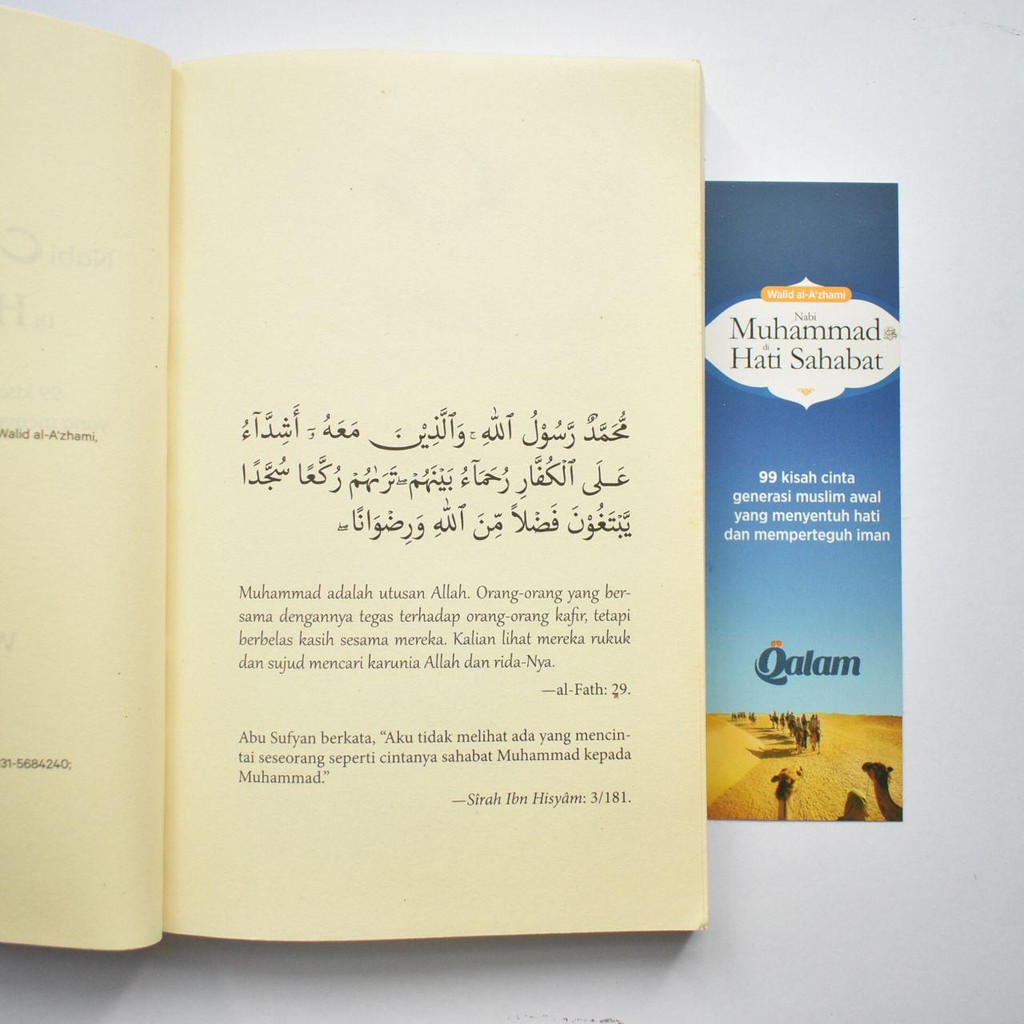 Walid al-A'zhami,
31-5684240;
مُّحَمَّدٌ رَّسُوْلُ ٱللّٰهِ ۚ وَٱلَّذِيْنَ مَعَهُ ۥٓ أَشِدَّآءُ
عَلَى ٱلْكُفَّارِ رُحَمَآءُ بَيْنَهُمْ ۖ تَرَىٰهُمْ رُكَّعًا سُجَّدًا
يَّبْتَغُوْنَ فَضْلًا مِّنَ ٱللّٰهِ وَرِضْوَانًا ۖ
Muhammad adalah utusan Allah. Orang-orang yang ber-
sama dengannya tegas terhadap orang-orang kafir, tetapi
berbelas kasih sesama mereka. Kalian lihat mereka rukuk
dan sujud mencari karunia Allah dan rida-Nya.
—al-Fath: 29.
Abu Sufyan berkata, “Aku tidak melihat ada yang mencin-
tai seseorang seperti cintanya sahabat Muhammad kepada
Muhammad.”
—Sîrah Ibn Hisyâm: 3/181.
Walid al-A'zhami
Nabi
Muhammad ﷺ
di
Hati Sahabat
99 kisah cinta
generasi muslim awal
yang menyentuh hati
dan memperteguh iman
Qalam